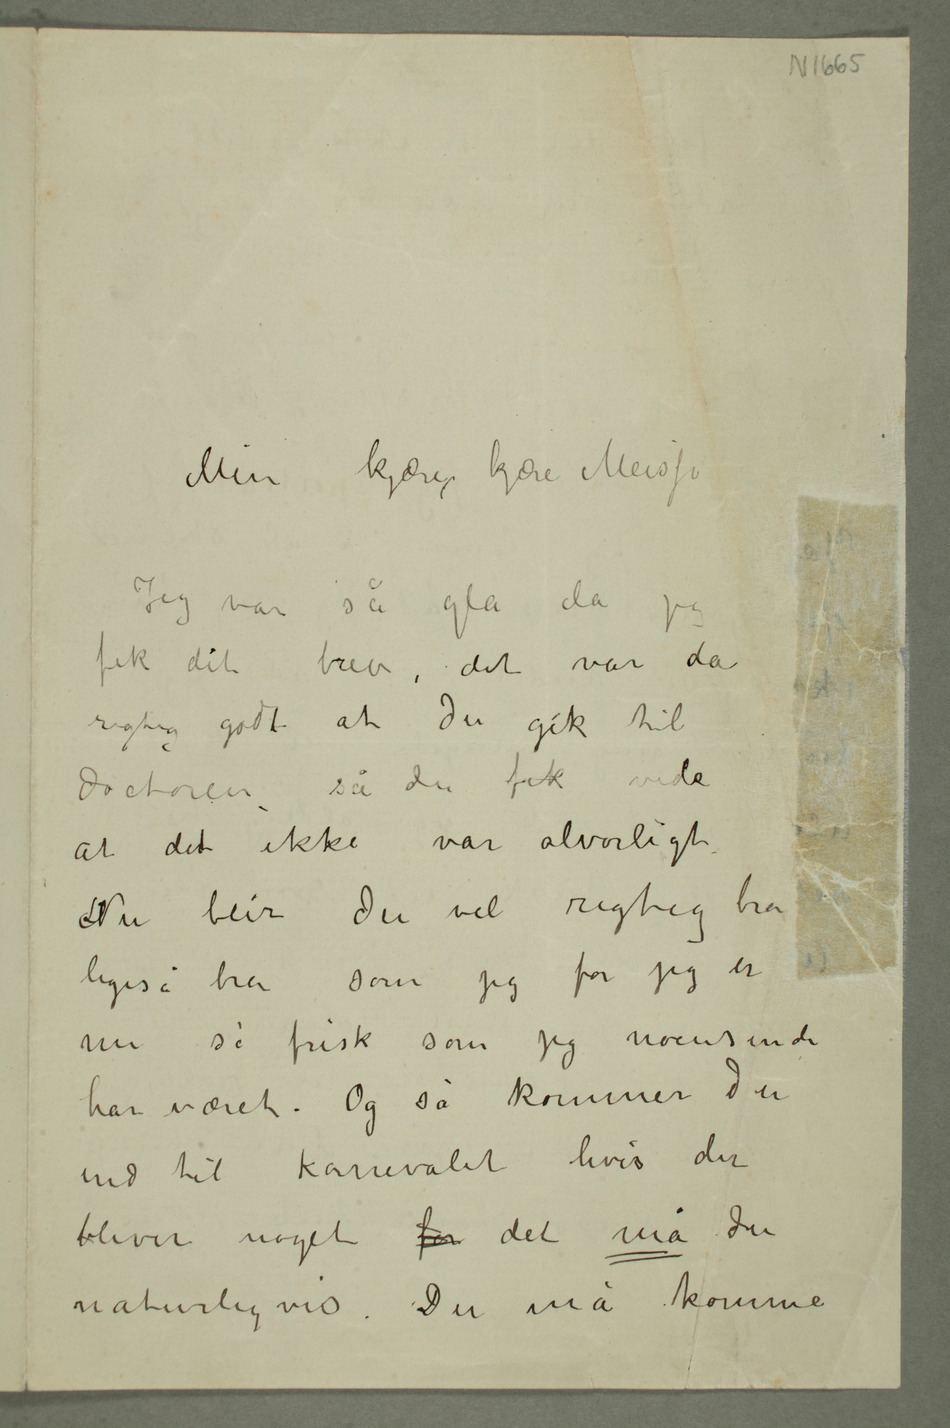 N1665
Min kjære, kjære Meisje
Jeg var så gla da jeg
fik dit brev, det var da
rigtig godt at du gik til
doctoren, så du fik vide
at det ikke var alvorligt.
Nu blir du vel rigtig bra
ligeså bra som jeg for jeg er
nu så frisk som jeg noensinde
har været. Og så kommer du
ind til karnevalet hvis der
bliver noget for det må du
naturligvis. Du må komme